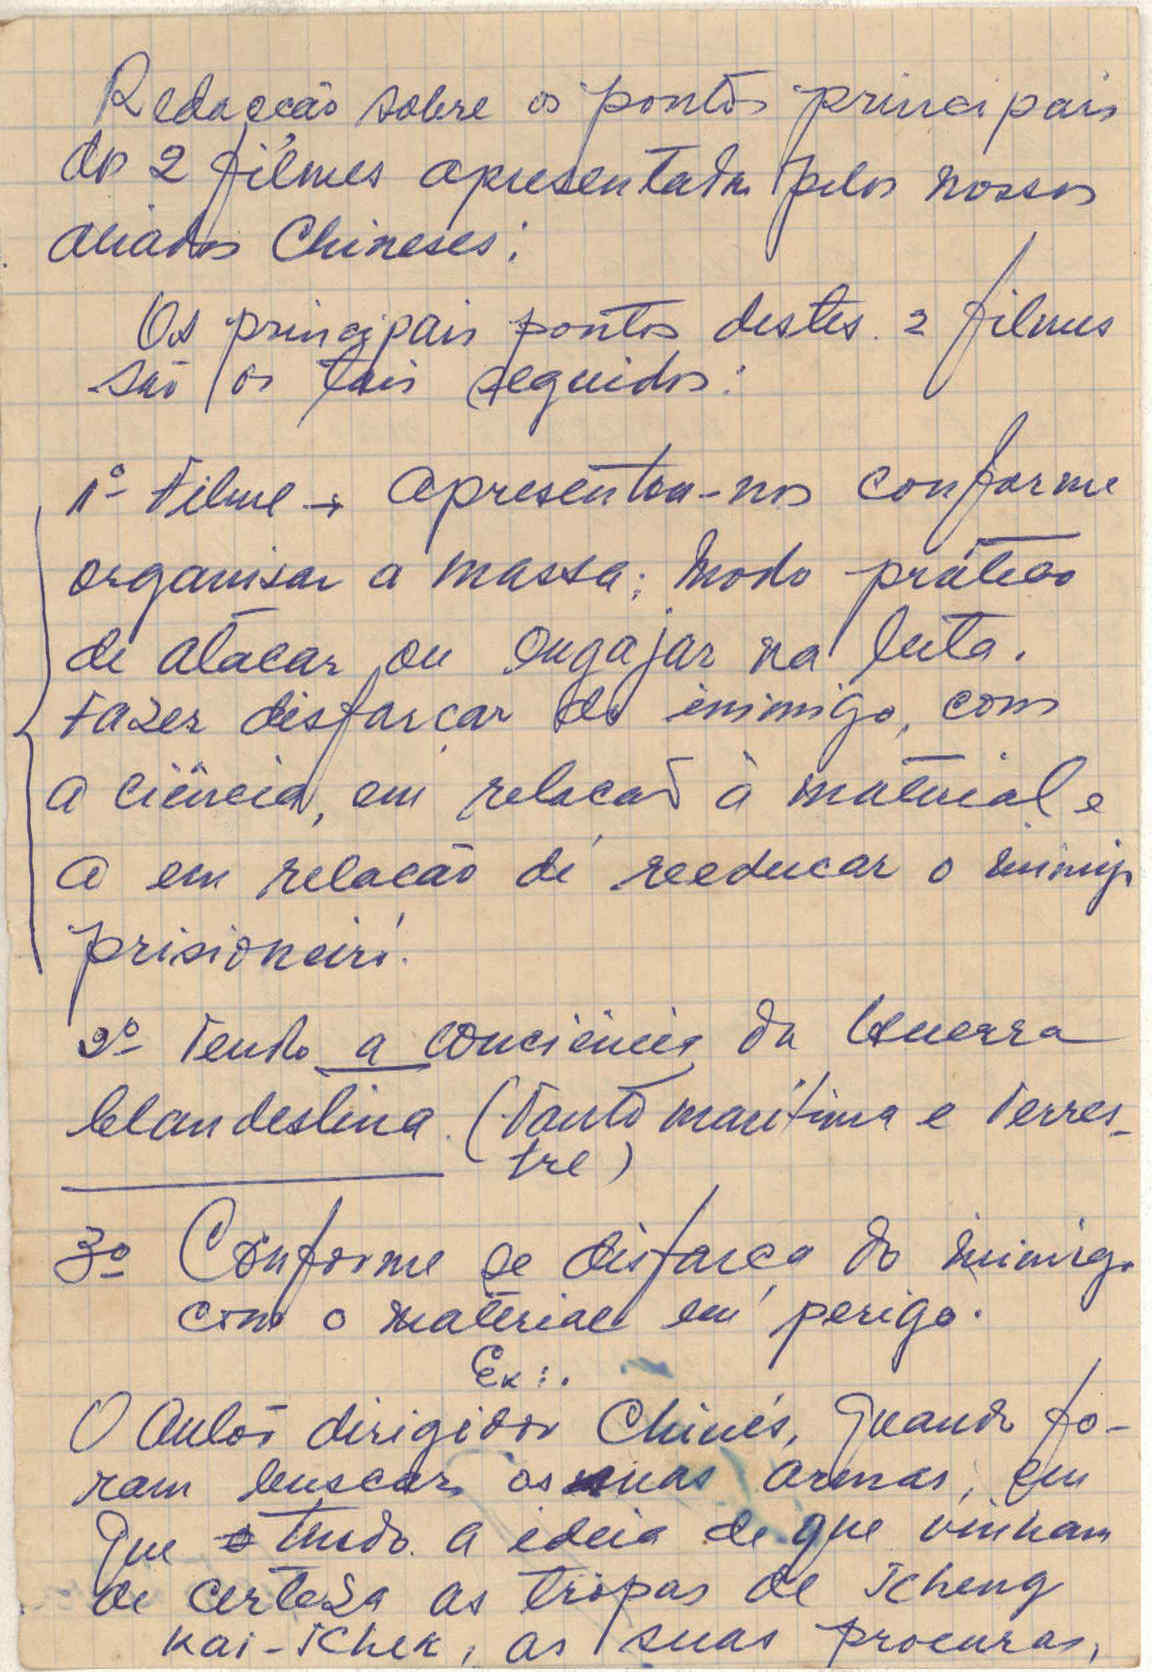 Redacção sobre os pontos principais
dos 2 filmes apresentados pelos nossos
aliados Chineses:
Os principais pontos destes 2 filmes
são os tais seguidos:
1º Filme → apresentou-nos conforme
organisar a massa; Modo prático
de atacar ou engajar na luta.
Fazer disfarçar do inimigo, com
a ciência, em relacão à material e
a em relacão de reeducar o inimigo
prisioneiro.
2º Tendo a conciência da Guerra
Clandestina (Tanto marítima e Terres-
tre)
3º Conforme se disfarça do inimigo
com o material em perigo.
Ex:.
O dirigidor Chinés, quando fo-
ram buscar as suas armas, em
que tendo a ideia de que vinham
de certeza as tropas de Tcheng
Kai-Tchek, as suas procuras,